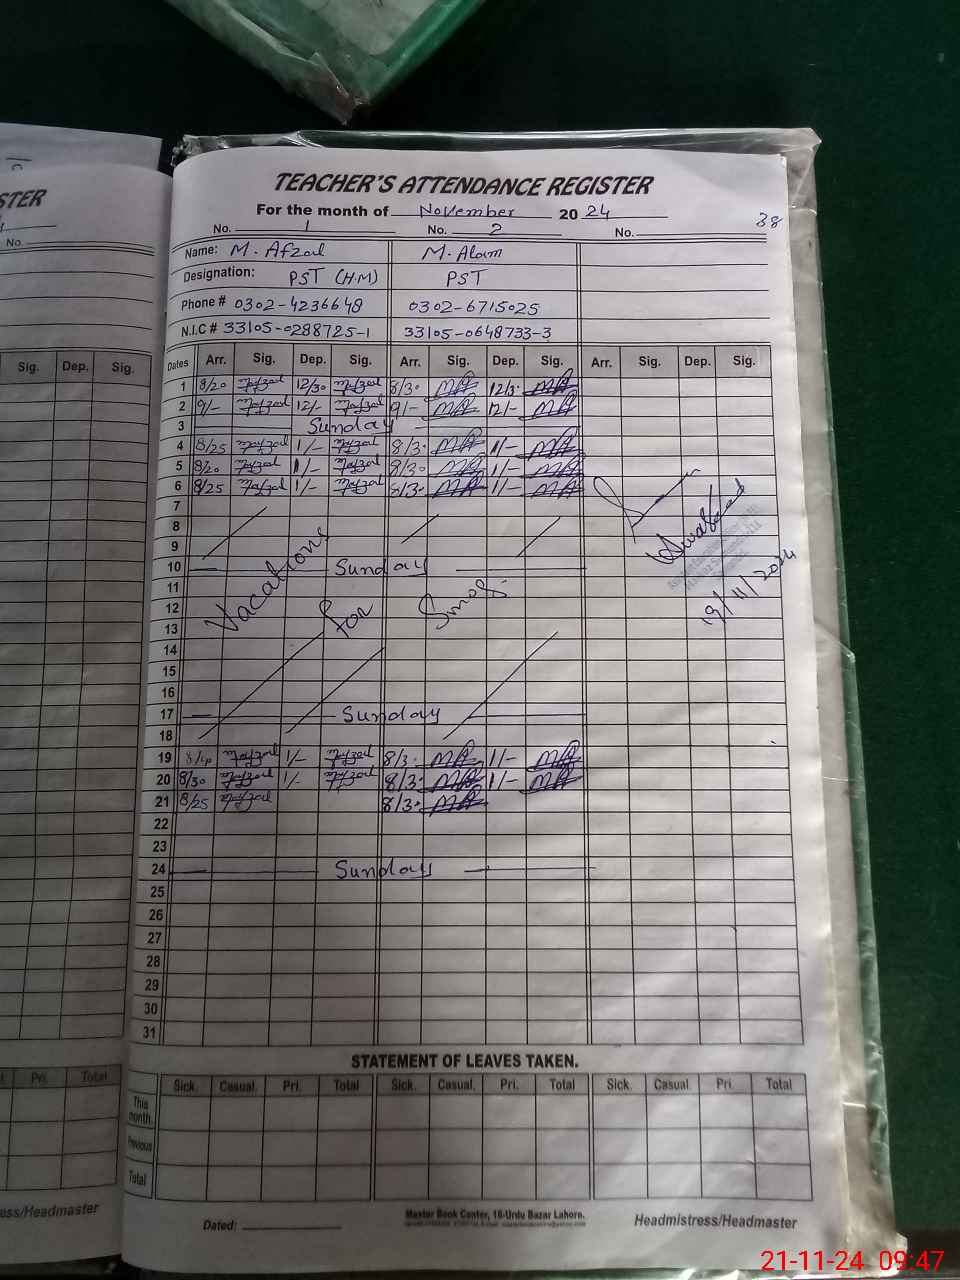 TEACHER'S ATTENDANCE REGISTER
For the month of November 20 24
38
No. 1 No. 2 No.
Name: M. Afzal M. Alam
Designation: PST (H.M) PST
Phone # 0302-4236648 0302-6715025
N.I.C # 33105-0288725-1 33105-0648733-3
Dates Arr. Sig. Dep. Sig. Arr. Sig. Dep. Sig. Arr. Sig. Dep. Sig.
1 8/20 MAfzal 12/30 MAfzal 8/3. MA 12/3. MA
2 9/- MAfzal 12/- MAfzal 9/- MA 12/- MA
3 Sunday
4 8/25 MAfzal 1/- MAfzal 8/3. MA 1/- MA
5 8/20 MAfzal 1/- MAfzal 8/30 MA 1/- MA
6 8/25 MAfzal 1/- MAfzal 8/3. MA 1/- MA
7
8
9
10 Sunday
11
12
13
Vacations for Smog
19/11/2024
14
15
16
17 Sunday
18
19 MAfzal 1/- MAfzal 8/3. MA 1/- MA
20 8/30 MAfzal 1/- MAfzal 8/3. MA 1/- MA
21 8/25 MAfzal 8/3. MA
22
23
24 Sunday
25
26
27
28
29
30
31
STATEMENT OF LEAVES TAKEN.
Sick. Casual. Pri. Total Sick. Casual. Pri. Total Sick. Casual. Pri. Total
This month.
Previous
Total
Dated:
Master Book Center, 16-Urdu Bazar Lahore.
Headmistress/Headmaster
STER
No.
Sig. Dep. Sig.
Pri. Total
ess/Headmaster
21-11-24 09:47